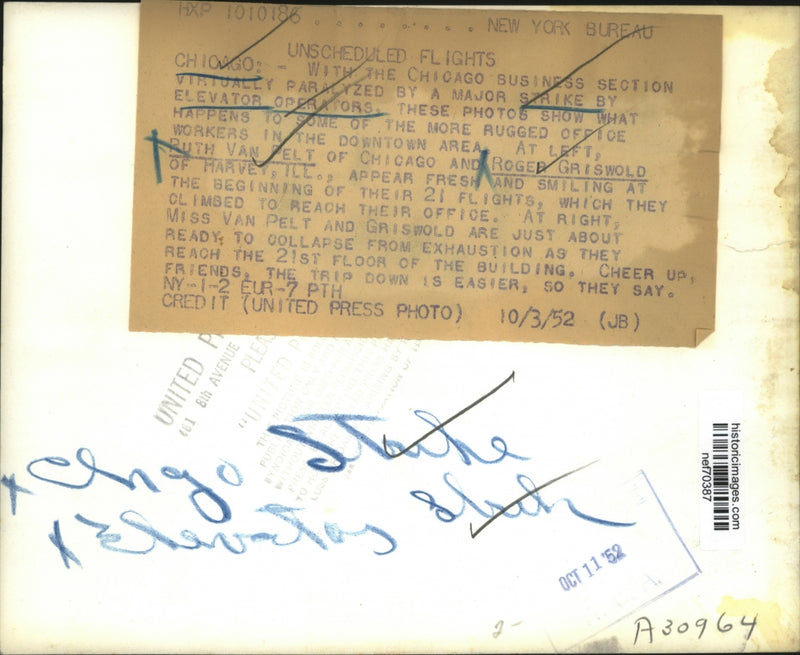 HXP 1010186 . . . . . . . . . NEW YORK BUREAU
UNSCHEDULED FLIGHTS
CHICAGO: - WITH THE CHICAGO BUSINESS SECTION
VIRTUALLY PARALYZED BY A MAJOR STRIKE BY
ELEVATOR OPERATORS, THESE PHOTOS SHOW WHAT
HAPPENS TO SOME OF THE MORE RUGGED OFFICE
WORKERS IN THE DOWNTOWN AREA. AT LEFT,
RUTH VAN PELT OF CHICAGO AND ROGER GRISWOLD
OF HARVEY, ILL., APPEAR FRESH AND SMILING AT
THE BEGINNING OF THEIR 21 FLIGHTS, WHICH THEY
CLIMBED TO REACH THEIR OFFICE. AT RIGHT,
MISS VAN PELT AND GRISWOLD ARE JUST ABOUT
READY TO COLLAPSE FROM EXHAUSTION AS THEY
REACH THE 21ST FLOOR OF THE BUILDING. CHEER UP,
FRIENDS, THE TRIP DOWN IS EASIER, SO THEY SAY.
NY-1-2 EUR-7 PTH
CREDIT (UNITED PRESS PHOTO) 10/3/52 (JB)
UNITED
461 8th AVENUE
"UNITED
x Chicago Strike
x Elevators Strike
historicimages.com
nef70387
OCT 11 '52
2-
A30964